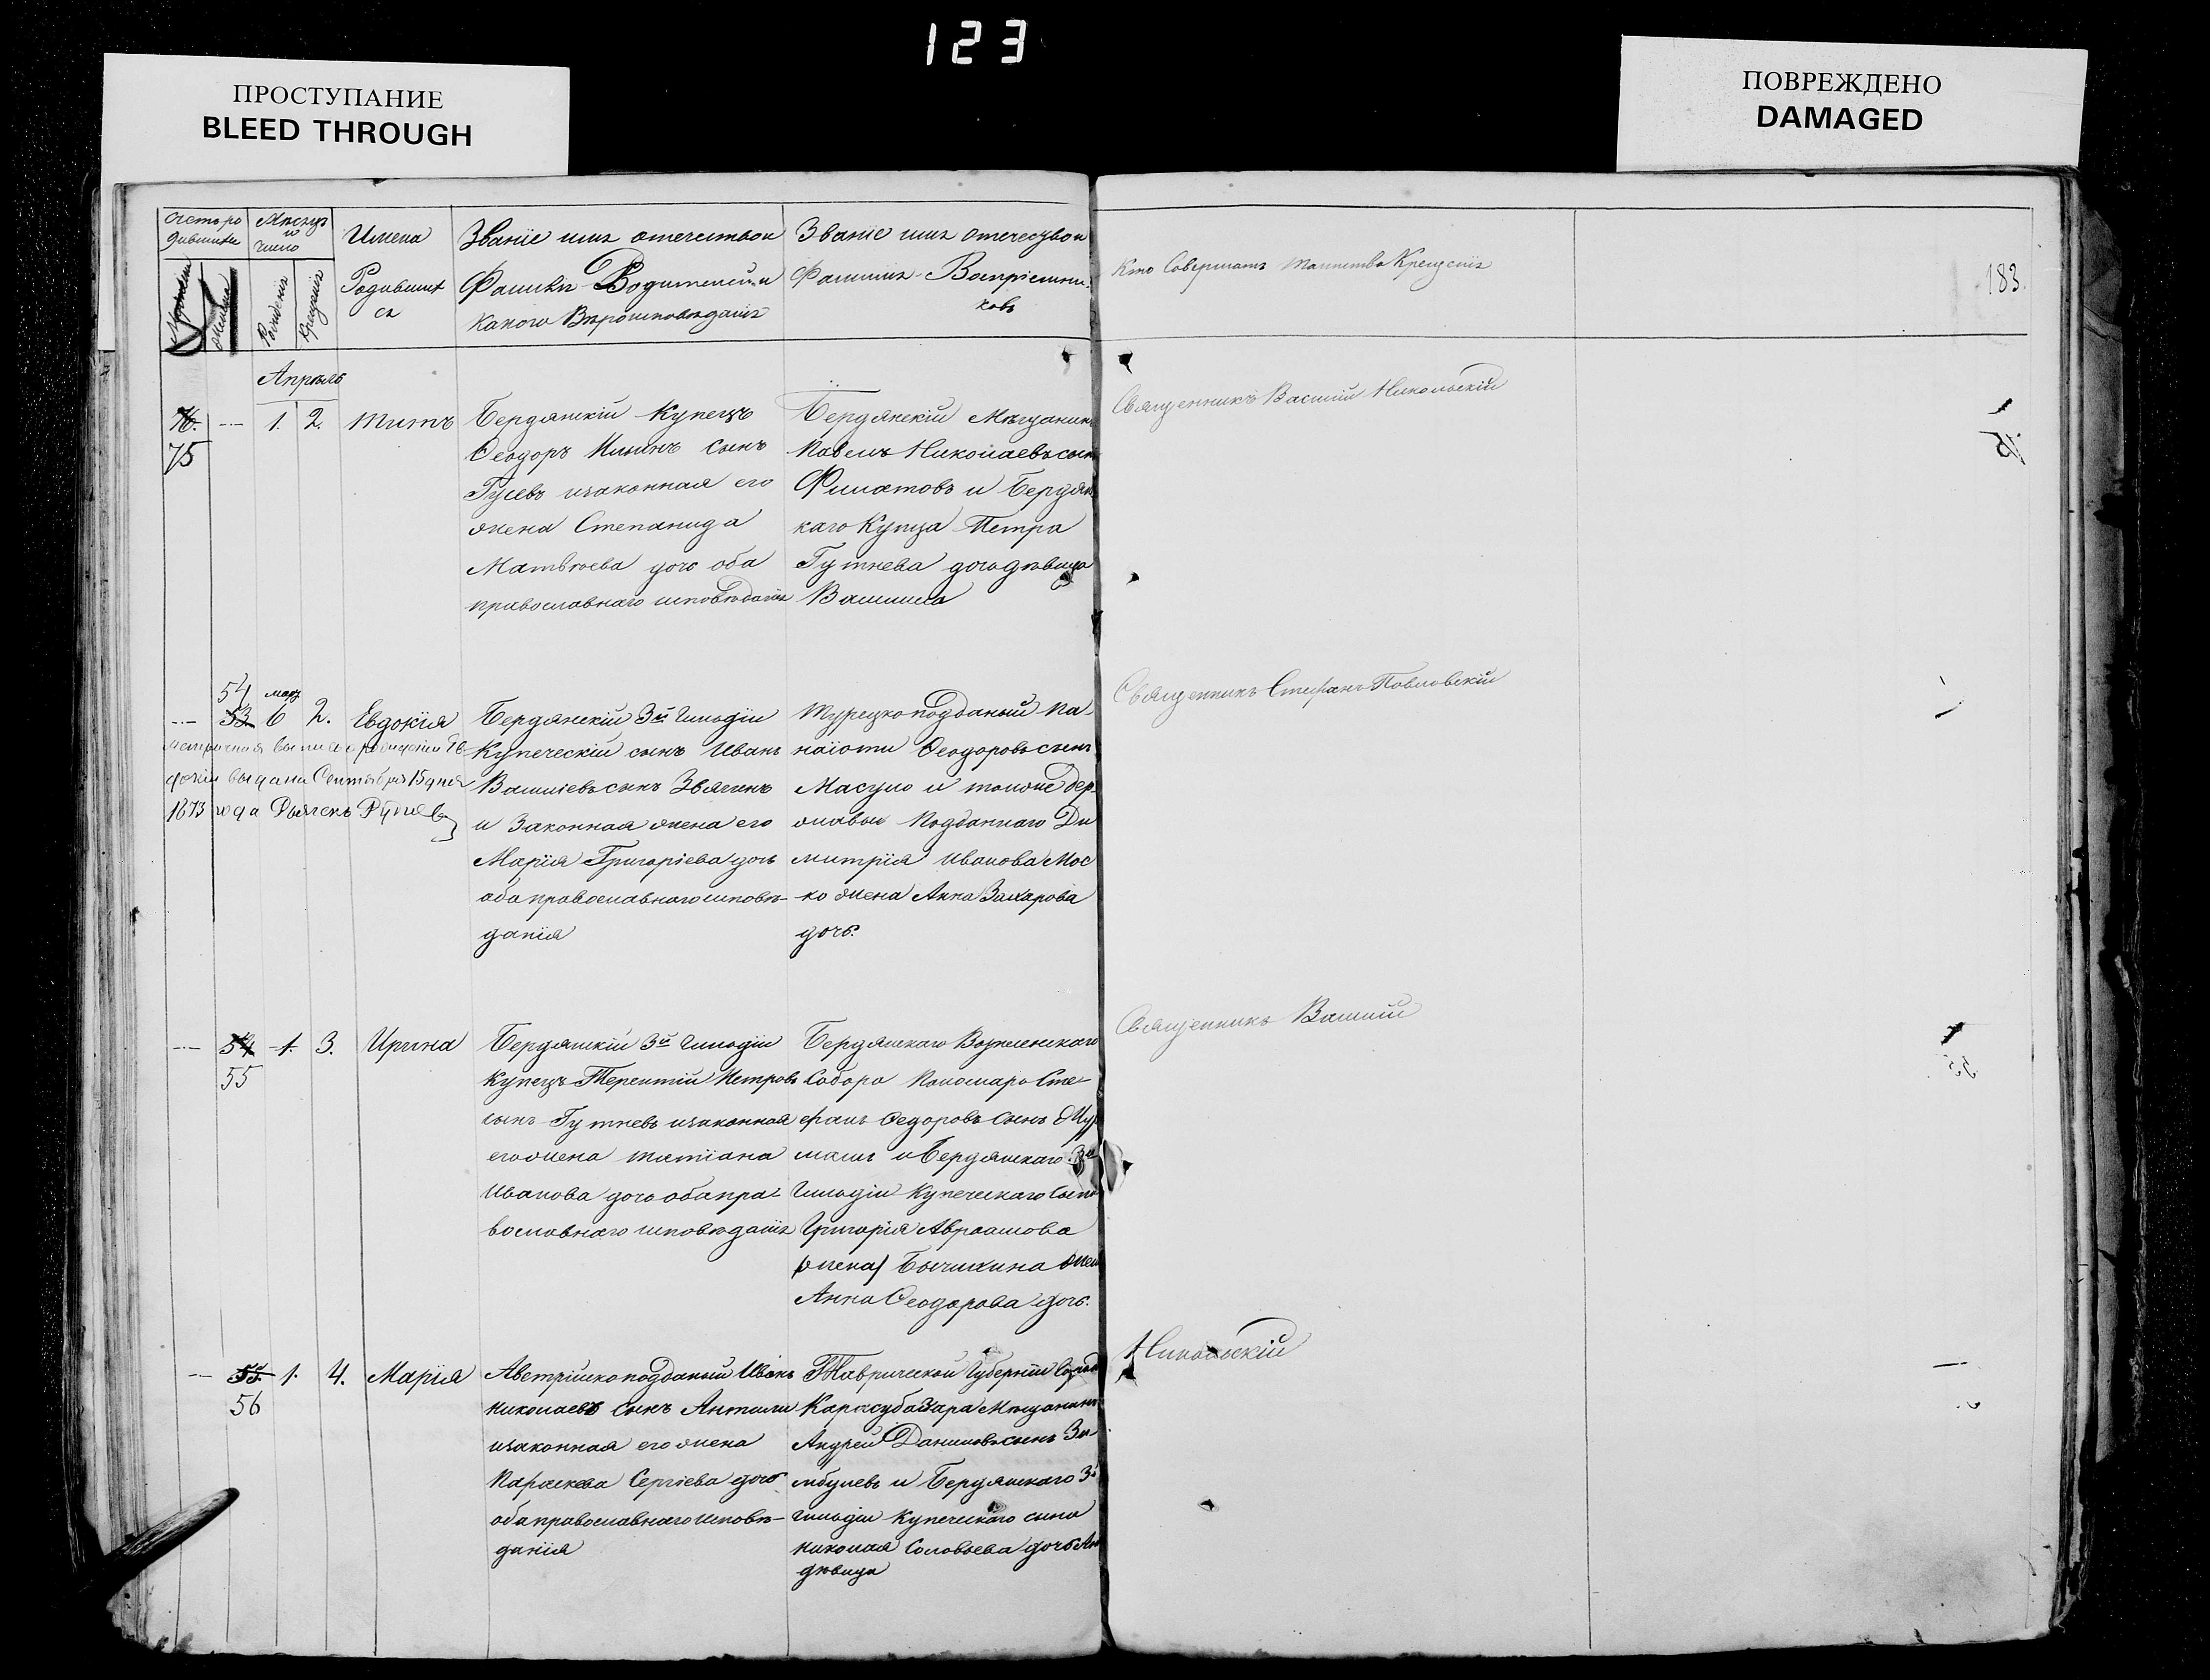 123
ПРОСТУПАНИЕ
BLEED THROUGH
ПОВРЕЖДЕНО
DAMAGED
Счетъ ро
дившихся
Мѣсяцъ
и
число
Рожденія
Крещенія
Имена
Родивших
ся
Званіе имя отечество и
Фамилія Родителей и
какого Вѣроисповѣданія
Званіе имя отечество и
Фамилія Воспріемни
ковъ
Кто Совершалъ таинство Крещенія
183.
Апрѣль
76.
75
1. 2. Титъ
Бердянскій купецъ
Феодоръ Ильинъ сынъ
Гусевъ изаконная его
жена Степанида
Матвѣева дочь оба
православнаго исповѣданія
Бердянскій Мѣщанинъ
Павелъ Николаевъ сынъ
Филатовъ и Бердян
каго Купца Петра
Гутнева дочь дѣвица
Священникъ Василій Никольскій
54 мар
53 6 2. Евдокія
докіи выдана Сентября 15 дня
1873 года
Бердянскій 3й Гильдіи
Купеческій сынъ Иванъ
Василіевъ сынъ Звягинъ
и Законная жена его
Марія Григоріева дочь
оба православнаго исповѣ-
данія
Турецкоподданый Па-
наіоти Феодоровъ сынъ
Масуло и тойже дер-
жавы Подданнаго Ди
митрія Иванова Мос
ко жена Анна Захарова
дочь.
Священникъ Стефанъ Павловскій
54 1. 3. Ирина
55
Бердянскій 3й Гильдіи
Купецъ Терентій Петровъ
сынъ Гутневъ изаконная
его жена Татіана
Иванова дочь оба пра-
вославнаго исповѣданія
Бердянскаго Вознесенскаго
Собора Пономарь Сте-
фанъ Федоровъ Сынъ
и Бердянскаго 3й
Гильдіи Купеческаго Сына
Григорія Авраамова
(жена) Бычихина жен
Анна Феодорова дочь.
Священникъ Василій
Никольскій
55. 1. 4. Марія
56
Австрійскоподданый Иванъ
Николаевъ Сынъ
изаконная его жена
Параскева Сергіева дочь
оба православнаго исповѣ-
данія
Таврической Губерніи
Карасубазара Мѣщанинъ
Андрей Даниловъ сынъ За-
мбулевъ и Бердянскаго 3й
Гильдіи Купеческаго сына
Николая Соловьева дочь Ан
дѣвица